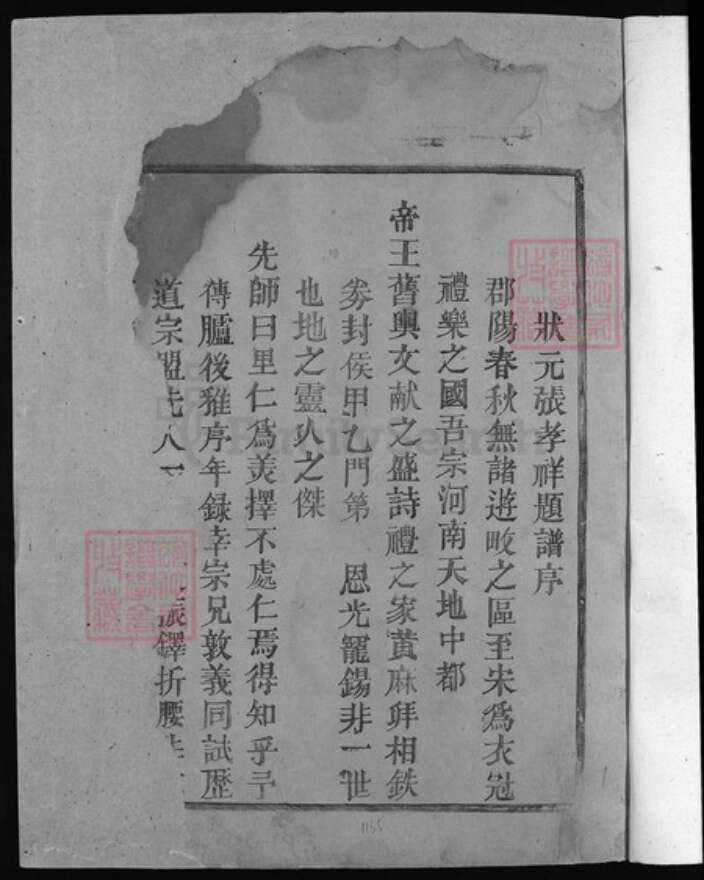 狀元張孝祥題譜序
郡陽春秋無諸遊畋之區至宋爲衣冠
禮樂之國吾宗河南天地中都
帝王舊輿文献之盛詩禮之家黃麻拜相鉄
券封侯甲乙門第 恩光寵錫非一世
也地之靈人之傑
先師曰里仁爲美擇不處仁焉得知乎予
傳臚後雅序年録幸宗兄敦義同試歷
道宗盟 鐸折腰
1155